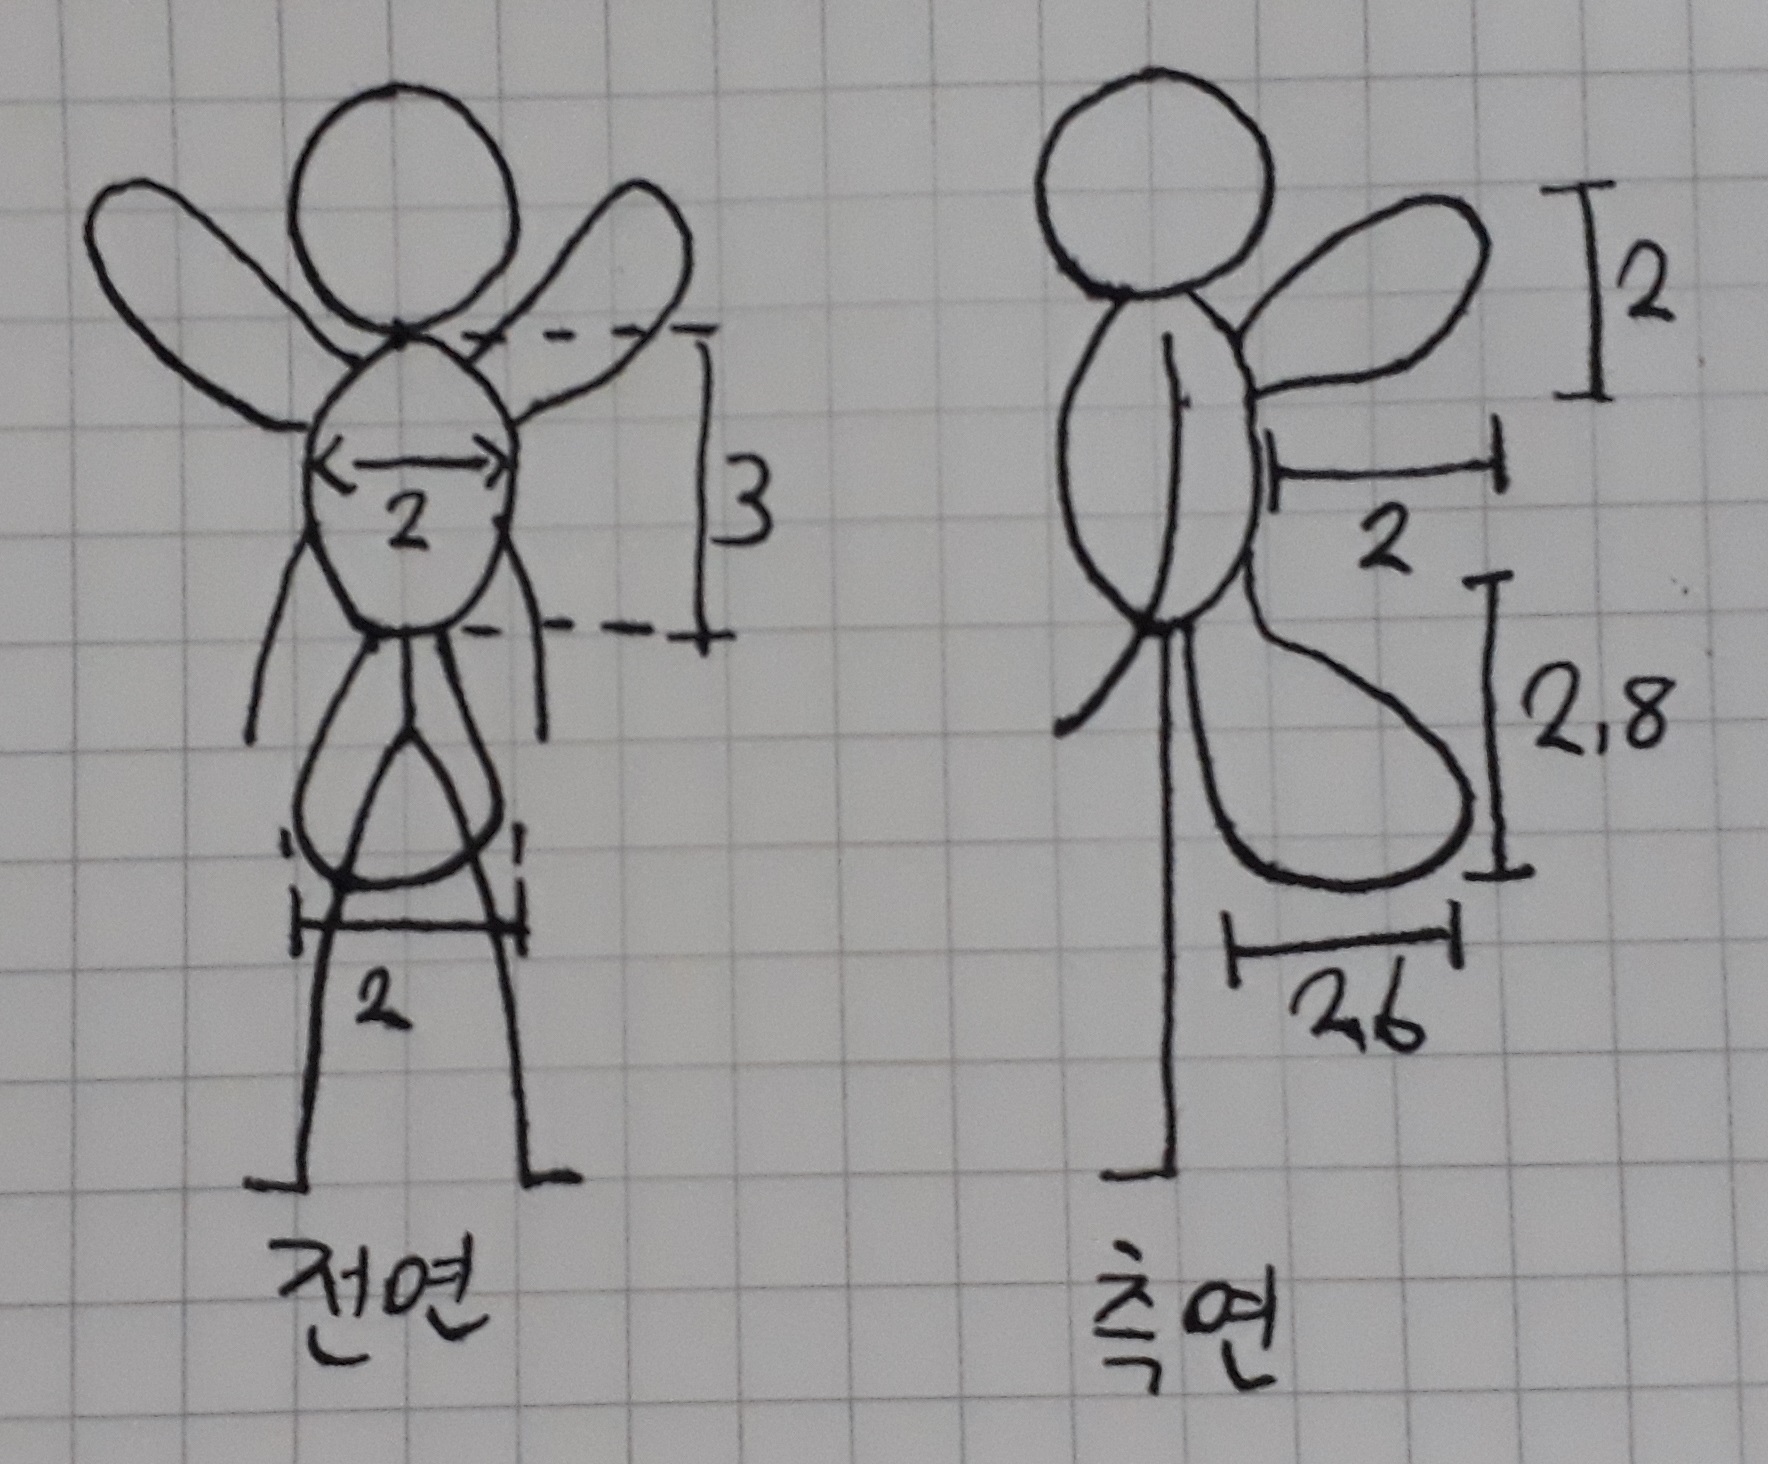 2
3
2
전면
2
2
2,8
2,6
측면